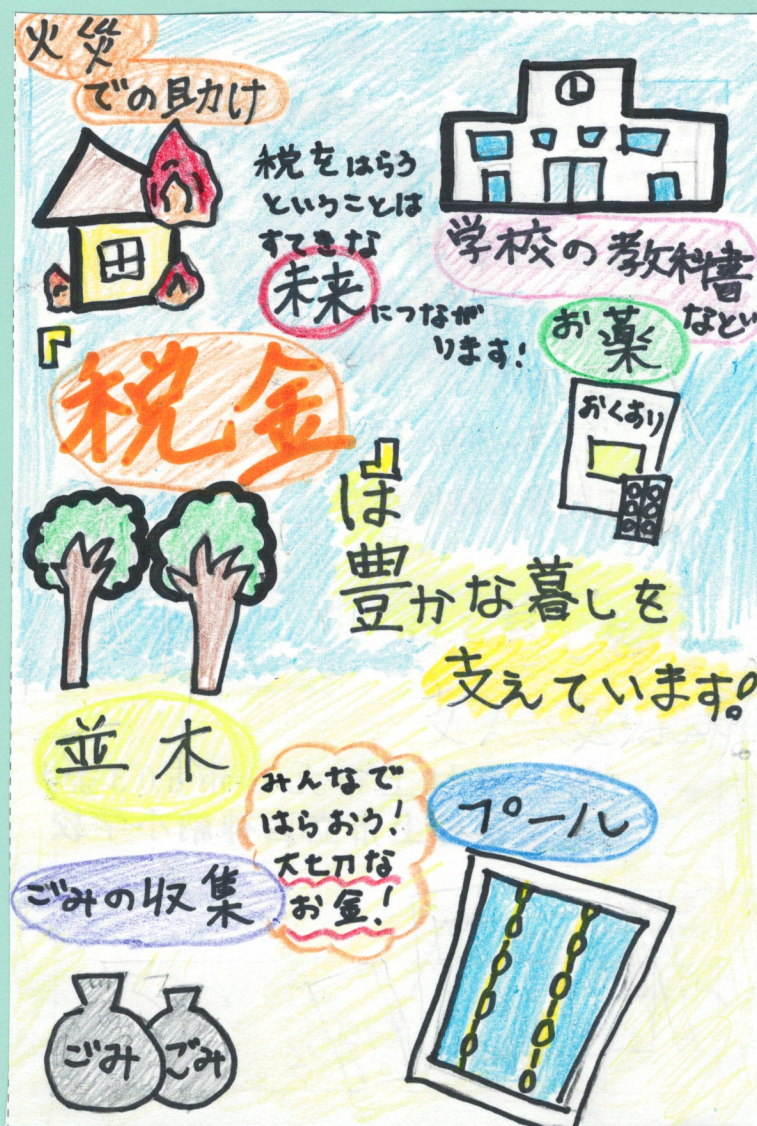 火災
での助け
税をはらう
ということは
すてきな
未来につながり
ります!
学校の教科書
など
お薬
おくすり
「税金」
は
豊かな暮しを
支えています!
並木
みんなで
はらおう!
大切な
お金!
プール
ごみの収集
ごみ
ごみ